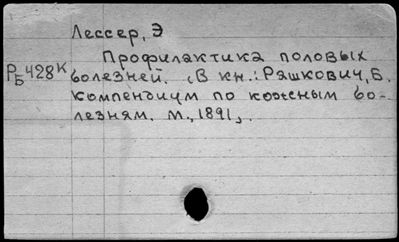 Лессер, Э
Профилактика половых
РБ 428К болезней. (В кн.: Рашкович, Б.
Компендиум по кожным бо-
лезням. М., 1891).